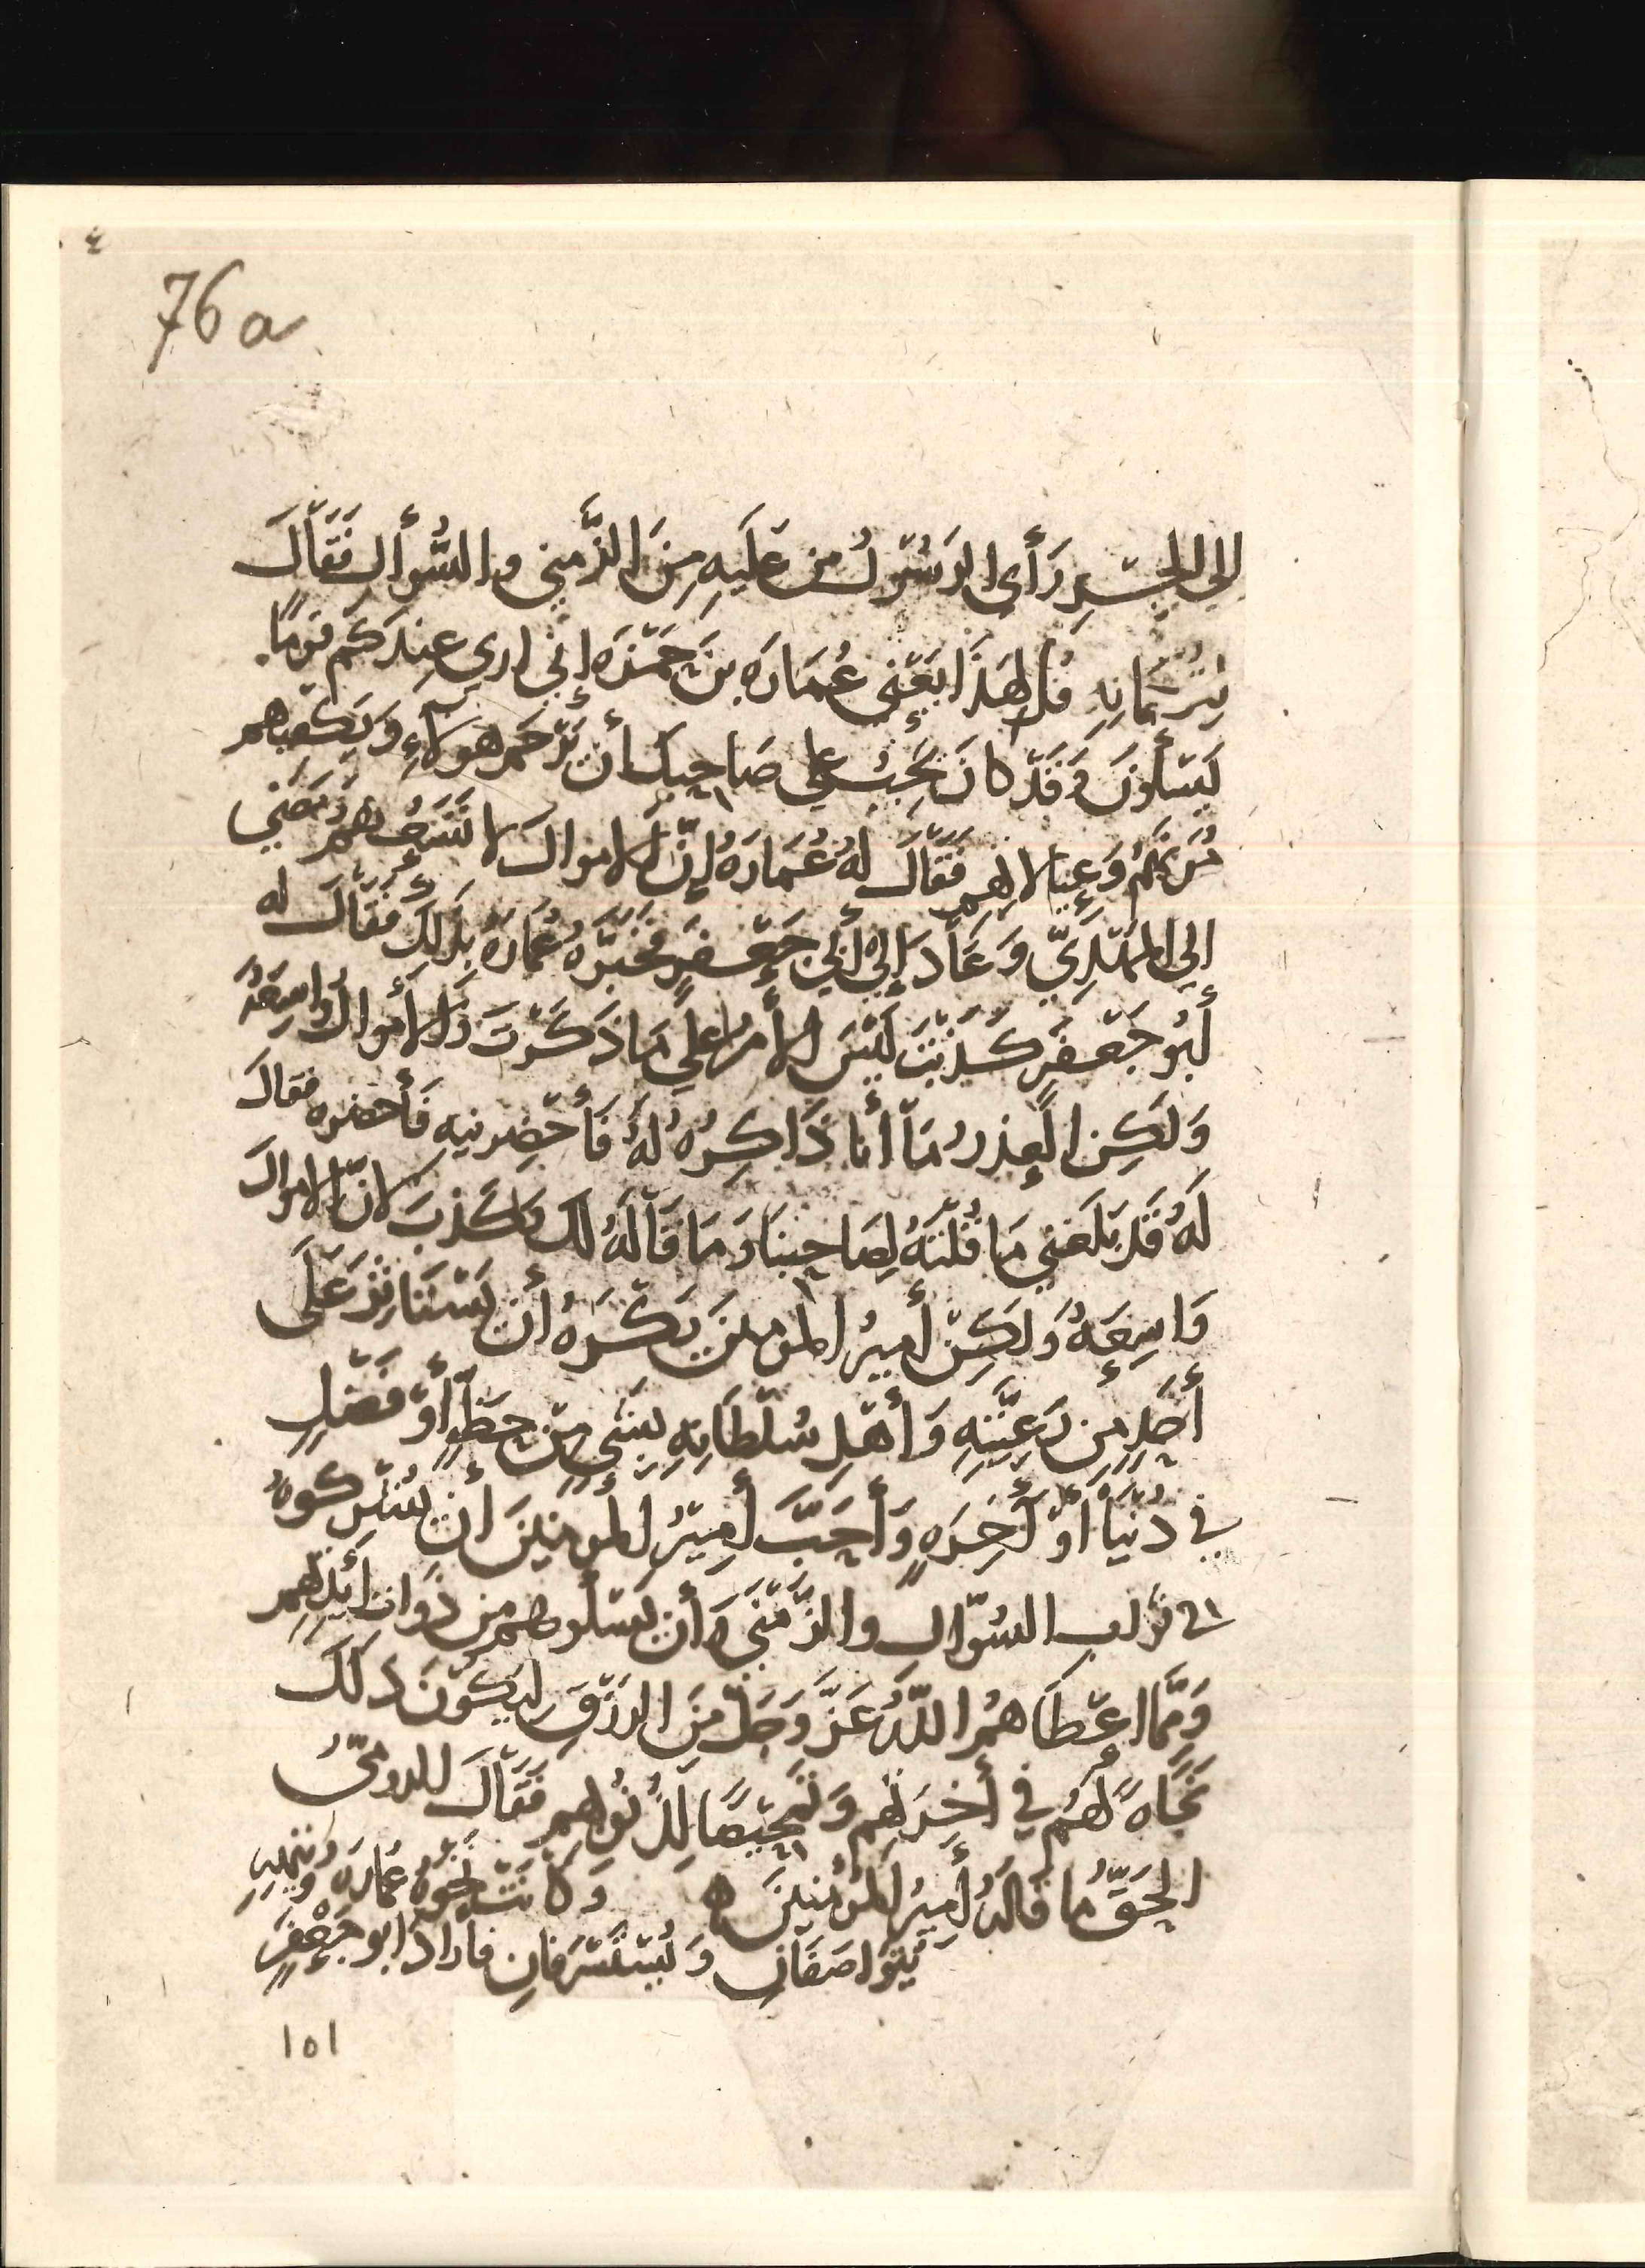 76 a
الى الجسر رَأى الرسُول من عليهِ مِنَ الزَّمنى والسُّوأل فَقَالَ
لِتُرْجُمَانِهِ قُل لِهَذَا يَعْنِي عُمَارَه بنَ حَمْزَه اني ارى عِندَكُم قومًا
يَسْألُونَ وَقَدْ كانَ يَجِبُ على صَاحِبِكَ أن يَرْحَمَ هولاءِ وَيَكفيهم
مُؤَنَهُم وَعِيَالاتهم فَقَالَ لهُ عُمَارَهُ إنَّ الاموالَ لا تَسَعُهُمْ وَمَضَى
الى المَهْدِيّ وَعَادَ إلى أبي جَعْفَرٍ فَخَبَّرَهُ عُمَارَهُ بِذَلِكَ فَقَالَ له
أبُو جَعْفَرٍ كَذَبْتَ لَيْسَ الأمرُ على مَا ذَكَرْتَ وَالأموالُ وَاسِعَةٌ
وَلَكِنِ العُذرُ مَا أنا ذَاكِرُهُ لهُ فَأحْضِرنيهِ فَأحضره فقالَ
لَهُ قَد بَلَغَني مَا قُلْتَهُ لِصَاحِبِنَا وَمَا قَالَهُ لَكَ وَكَذَبَ لانّ الاموالَ
وَاسِعَهٌ وَلَكِنْ أميرُ المومنينَ يَكْرَهُ أن يَسْتَاثِرَ عَلَى
أحَدٍ مِن رَعِيَّتِهِ وَأهْلِ سُلْطَانِهِ بِشَيءٍ مِنْ حَظٍّ أوْ فَضْلٍ
في دُنْيَا أوْ أخِرَهٍ وَأحَبَّ أمِيرُ المُومِنِينَ أن يُشْرِكُوهُ
في ثواب السُوّال والزَّمْنَى وَأن يَسْألُوهم من ذَوات أيْدِيهِم
وَمِمَّا اعْطَاهُمُ اللَّهُ عَزَّ وَجَلَّ مِنَ الرِزْقِ لِيَكُونَ ذلَكَ
نَجَاهً لهُم في أخِرَتِهِم وَتَمْحِيصًا لِذُنُوبِهِم فَقَالَ الرومىُّ
الحَقُّ ما قَالَهُ أمِيرُ المُومِنينَ ه وَكَانَتْ نَخْوَهُ عُمَارَه وَتِيْهِهِ
يَتَواصَفَانِ وَيُسْتَسْرَفَانِ فارادَ ابو جَعْفَرٍ
١٥١